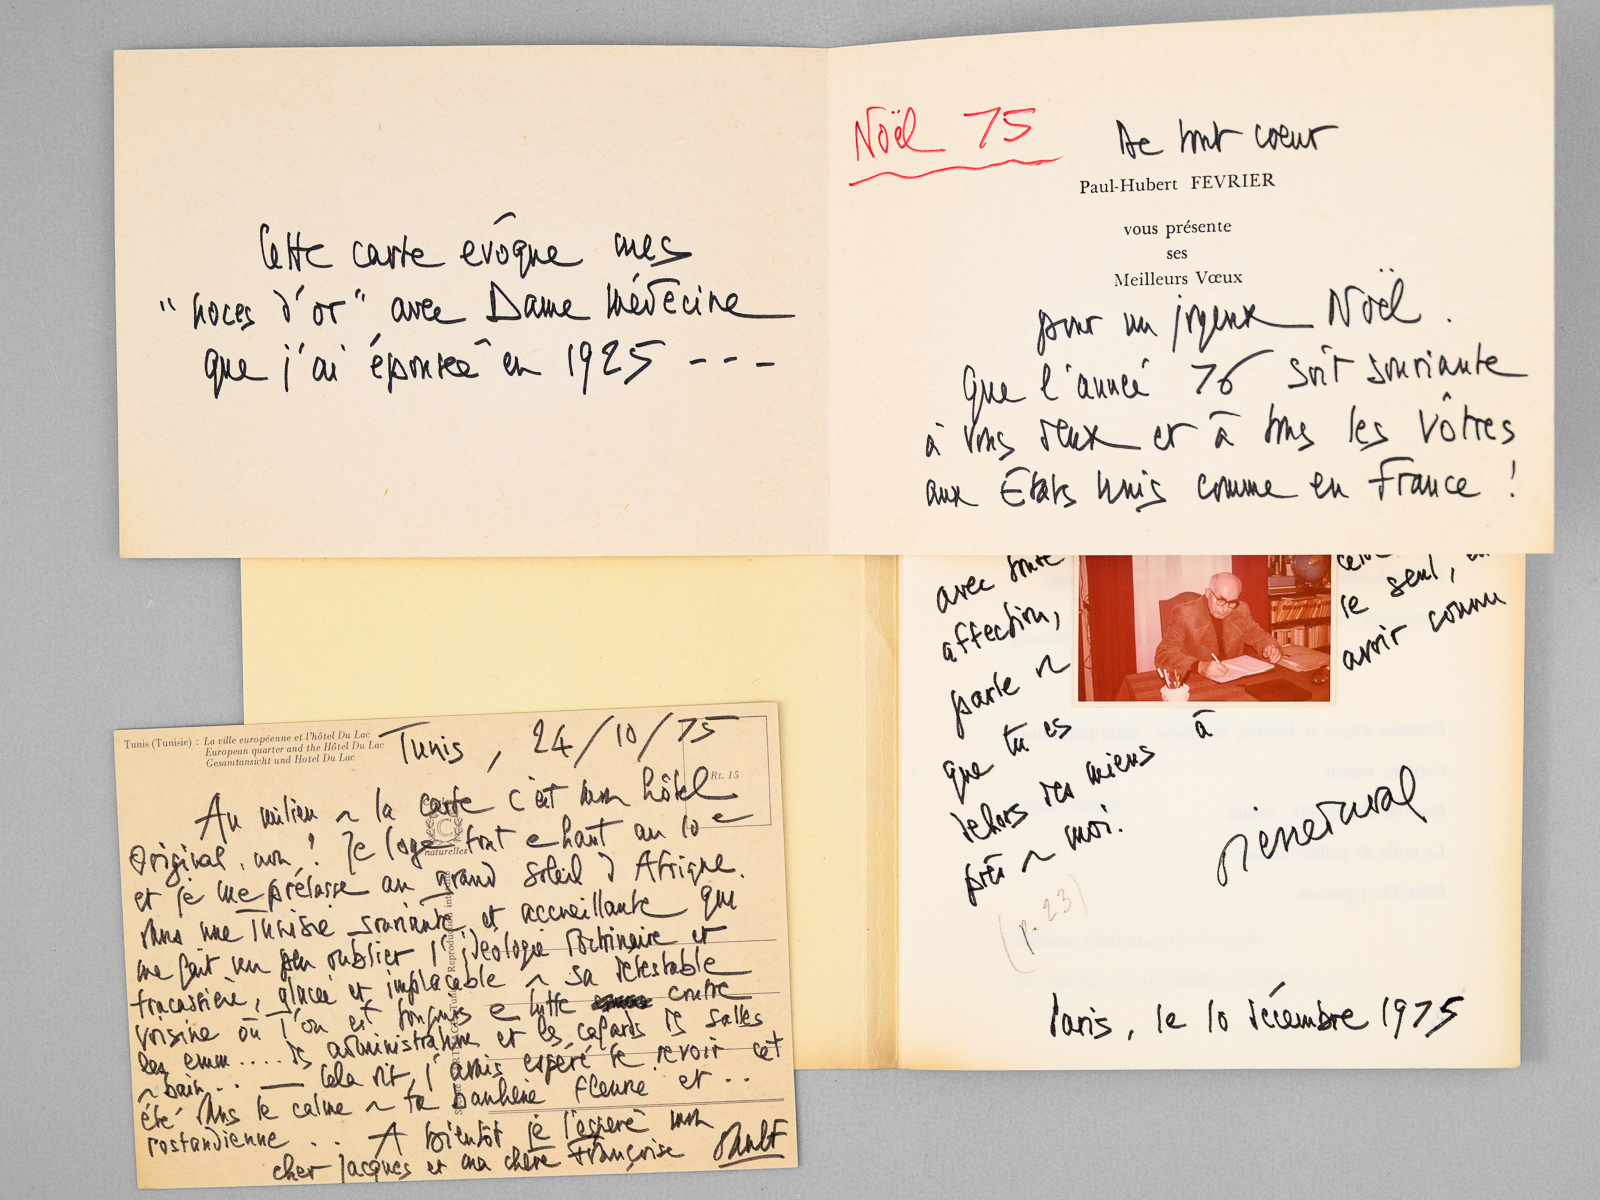 Cette carte évoque mes
"noces d'or" avec Dame Médecine
que j'ai épousée en 1925 ---
Noël 75
De tout coeur
Paul-Hubert FEVRIER
vous présente
ses
Meilleurs Vœux
pour un joyeux Noël.
Que l'année 76 soit souriante
à vous deux et à tous les vôtres
aux États Unis comme en France !
avec toute
affection,
parle
que tu es
dehors des miens à
près moi.
(p. 23)
le seul,
avoir connu
Paris, le 10 décembre 1975
Tunis (Tunisie) : La ville européenne et l'hôtel Du Lac
European quarter and the Hôtel Du Lac
Gesamtansicht und Hotel Du Lac
Rt. 15
naturelles
Tunis, 24/10/75
Au milieu de la carte c'est mon hôtel
Original, non ? Je loge tout en haut au 10e
et je me prélasse au grand soleil d'Afrique.
dans une Tunisie souriante et accueillante qui
me fait un peu oublier l'idéologie doctrinaire et
tracassière, glacée et implacable de sa détestable
voisine où l'on est toujours en lutte contre
les emm.... des administrations et les cafards des salles
de bain... — Cela dit, j'avais espéré te revoir cet
été dans le calme de ta banlieue fleurie et ..
rostandienne .. A bientôt je l'espère mon
cher Jacques et ma chère Françoise